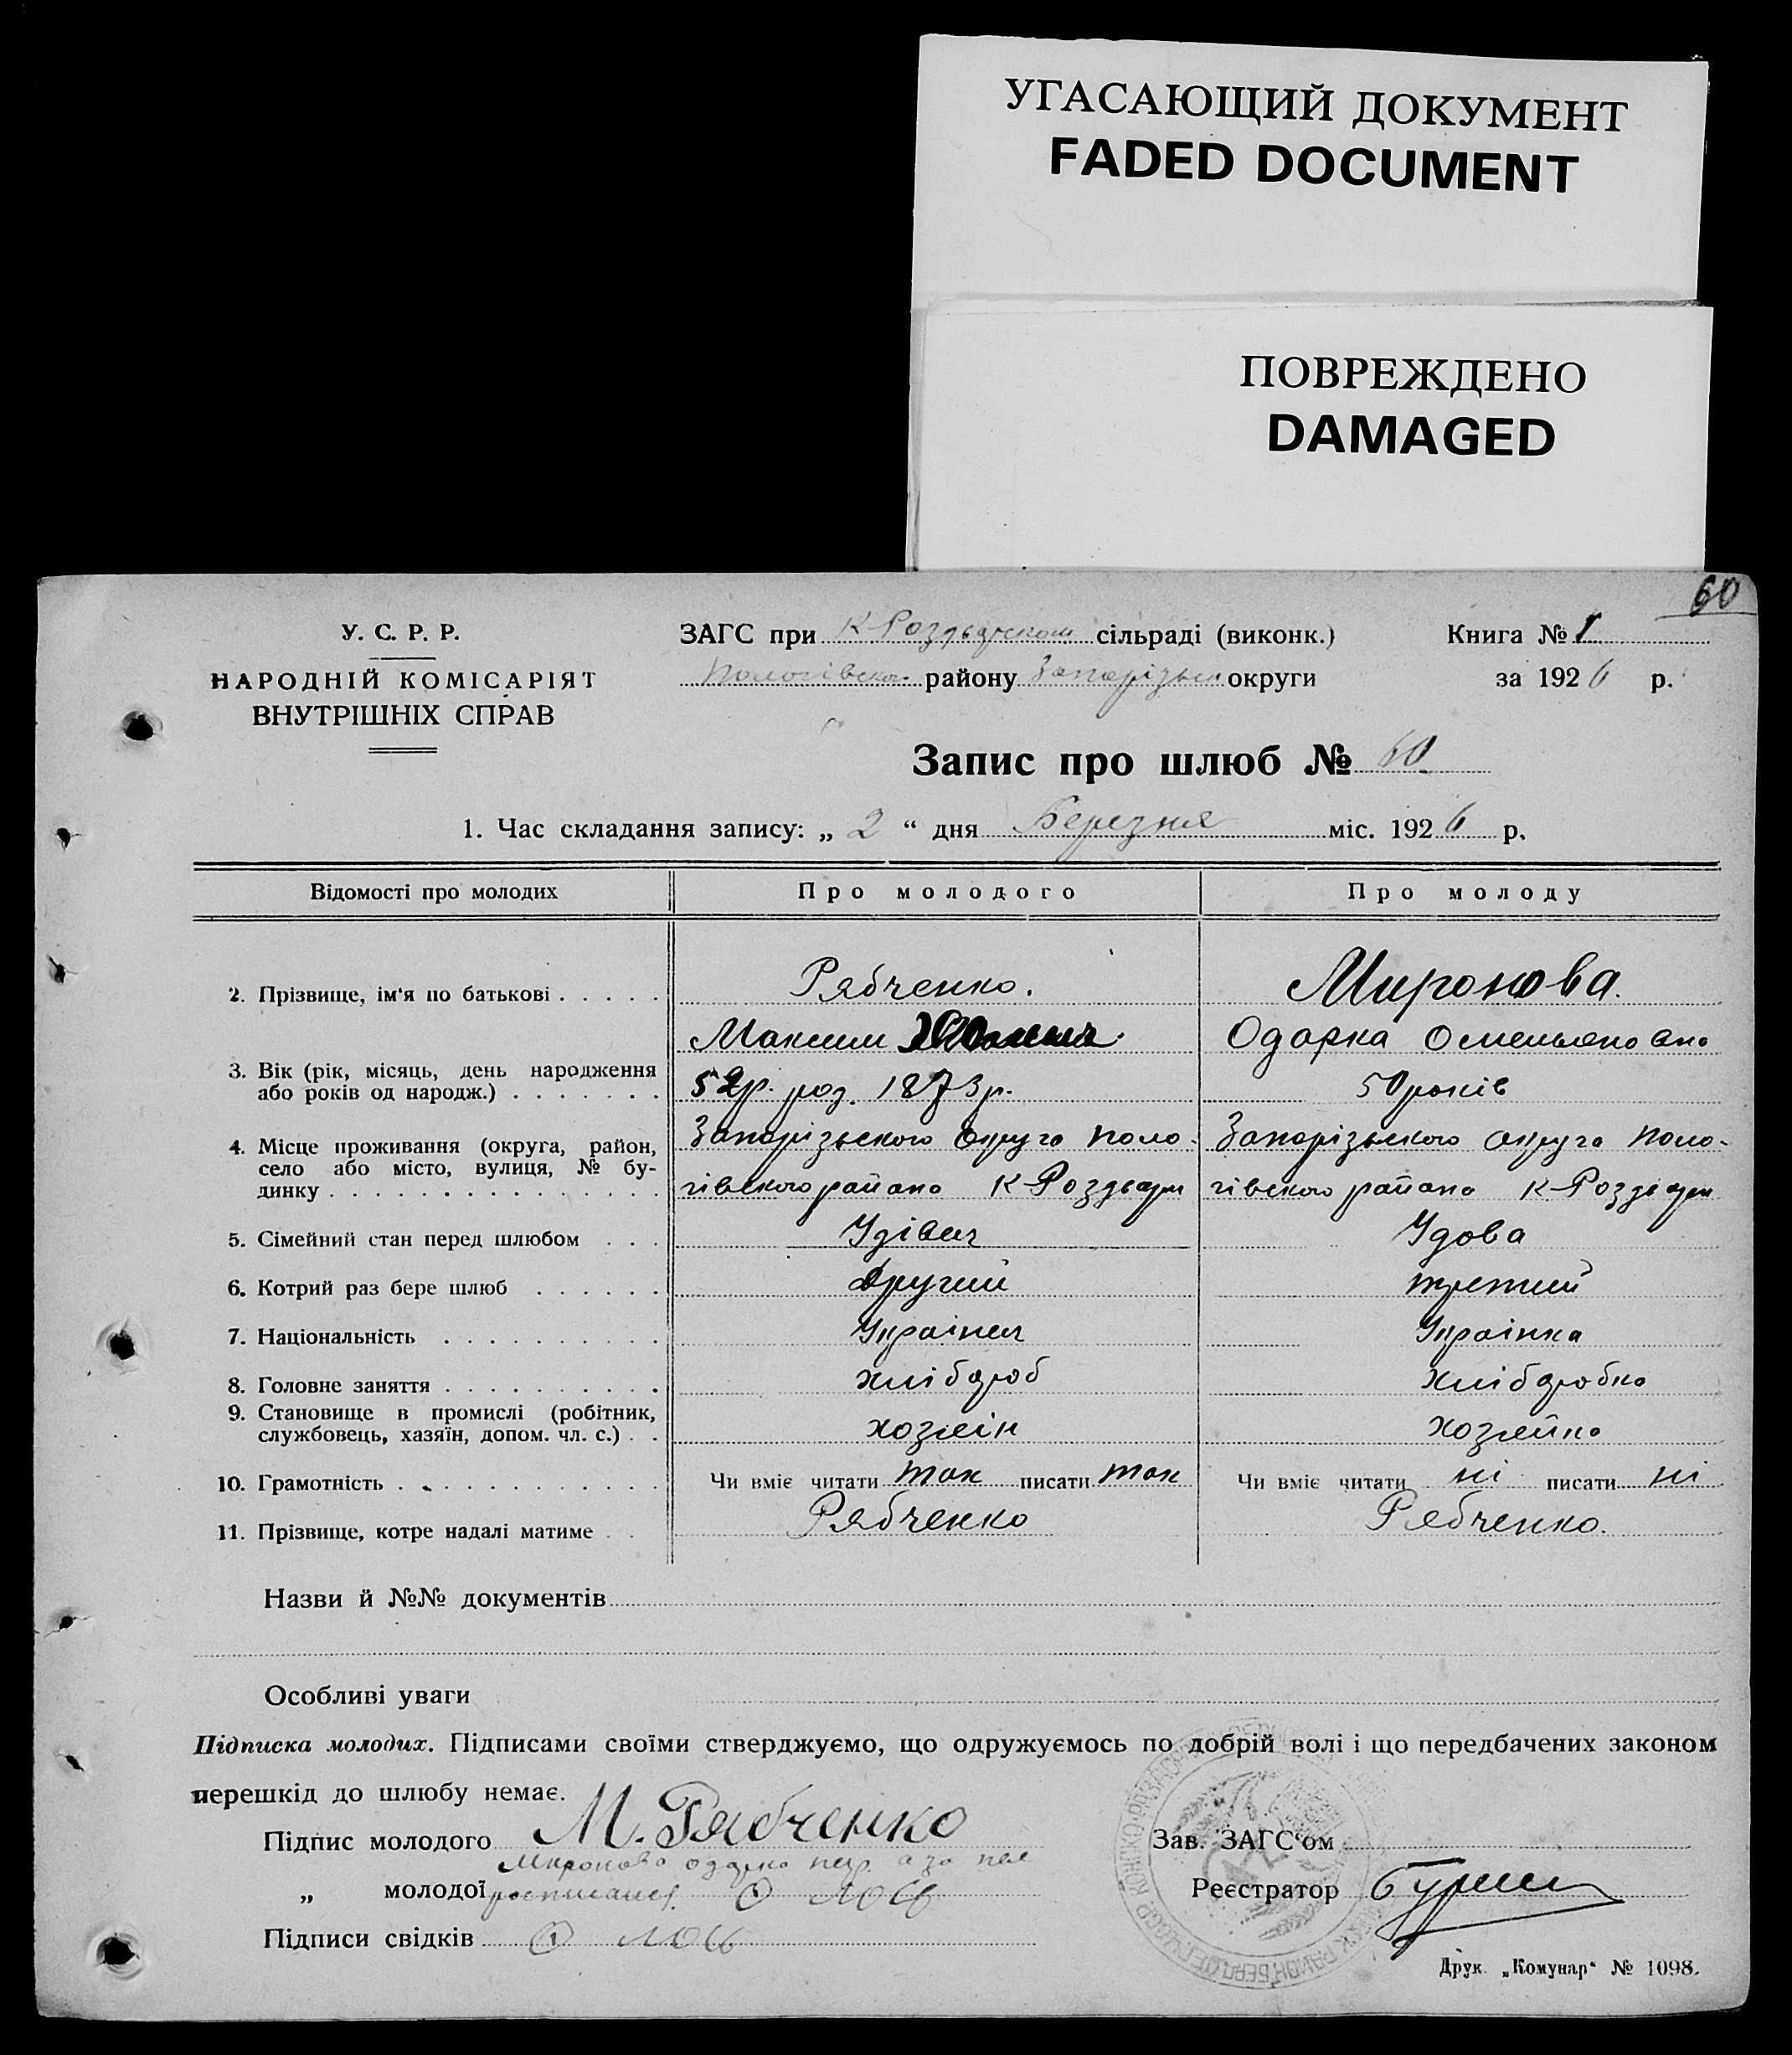 УГАСАЮЩИЙ ДОКУМЕНТ
FADED DOCUMENT
ПОВРЕЖДЕНО
DAMAGED
60
У. С. Р. Р.
НАРОДНІЙ КОМІСАРІЯТ
ВНУТРІШНІХ СПРАВ
ЗАГС при К Роздорском сільраді (виконк.)
Пологівсько району Запорізьк округи
Книга № 1
за 1926 р.
Запис про шлюб № 60
1. Час складання запису: „ 2 “ дня Березня міс. 1926 р.
Відомості про молодих Про молодого Про молоду
2. Прізвище, ім'я по батькові Рябченко. Миронова.
Максим Одарка Омельяновно
3. Вік (рік, місяць, день народження
або років од народж.) 52р. род. 1873р. 50 років
4. Місце проживання (округа, район,
село або місто, вулиця, № бу-
динку
Запорізьского округа Поло-
гівского района К-Роздори
Запорізьского округа Поло-
гівского района К-Роздори
5. Сімейний стан перед шлюбом Удівец Удова
6. Котрий раз бере шлюб Другий третий
7. Національність Українец Українка
8. Головне заняття хлібороб хліборобка
9. Становище в промислі (робітник,
службовець, хазяїн, допом. чл. с.) хозяїн хозяйка
10. Грамотність Чи вміє читати так писати так Чи вміє читати ні писати ні
11. Прізвище, котре надалі матиме Рябченко Рябченко.
Назви й №№ документів
Особливі уваги
Підписка молодих. Підписами своїми стверджуємо, що одружуємось по добрій волі і що передбачених законом
перешкід до шлюбу немає.
Підпис молодого М. Рябченко
Зав. ЗАГС'ом
Миронова одарка негр. а за нее
„ молодої росписался
Реєстратор
Підписи свідків
Друк. „Комунар“ № 1098.